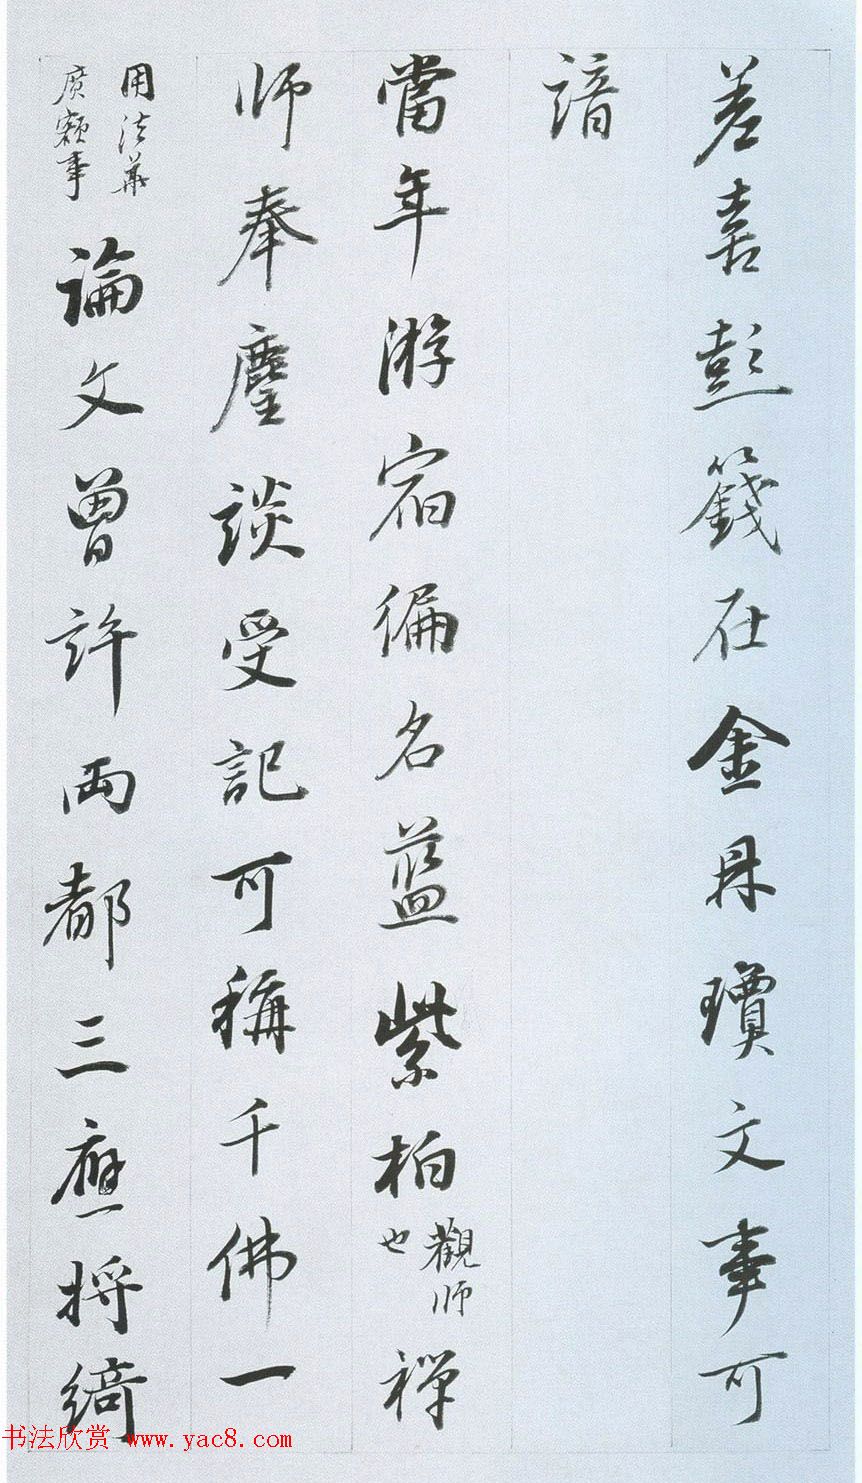 差喜彭籛在金丹瓊文事可
諳
當年游宿徧名藍紫柏觀師也禪
師奉麈談受記可稱千佛一
用法華廣額事論文曾許兩都三應將綺
书法欣赏 www.yac8.com